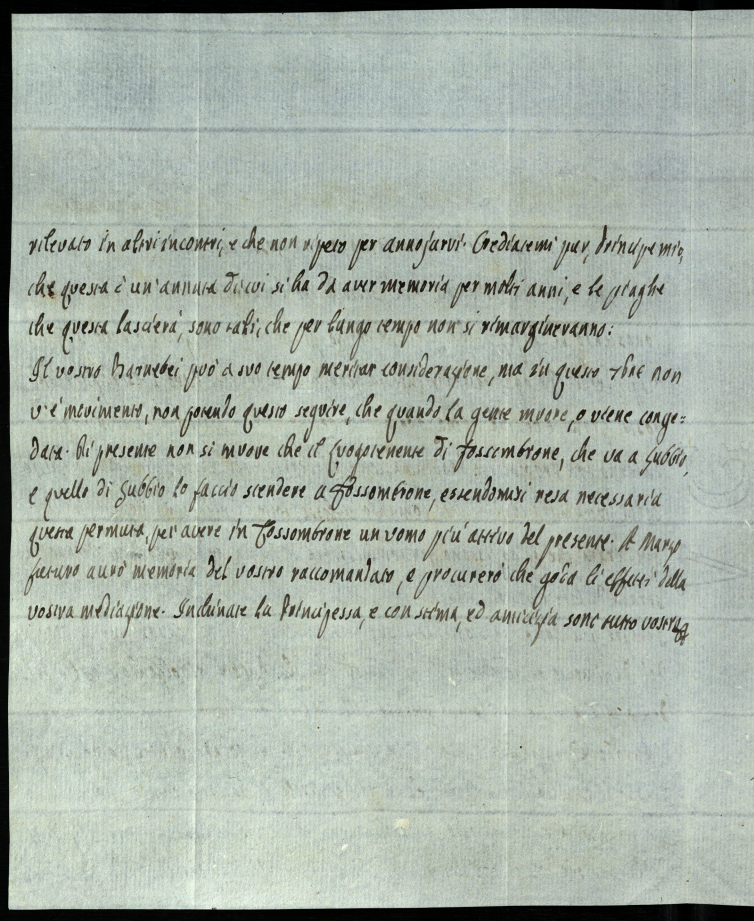 rilevato in altri incontri, e che non ripeto per annojarvi. Crediatemi pur, Principe mio,
che questa è un'annata di cui si ha da aver memoria per molti anni, e le piaghe
che questa lascierà, sono tali, che per lungo tempo non si rimargineranno:
Il vostro Barnabei può a suo tempo meritar considerazione, ma in questo 7bre non
v'è movimento, non potendo questo seguire, che quando la gente muore, o viene conge=
data. Di presente non si muove che il Luogotenente di Fossombrone, che va a Gubbio,
e quello di Gubbio lo faccio scendere a Fossombrone, essendomisi resa necessaria
questa permuta, per avere in Fossombrone un uomo più attivo del presente. A Marzo
futuro avrò memoria del vostro raccomandato, e procurerò che goda li effetti della
vostra mediazione. Inchinate la Principessa, e con stima, ed amicizia sono tutto vostro